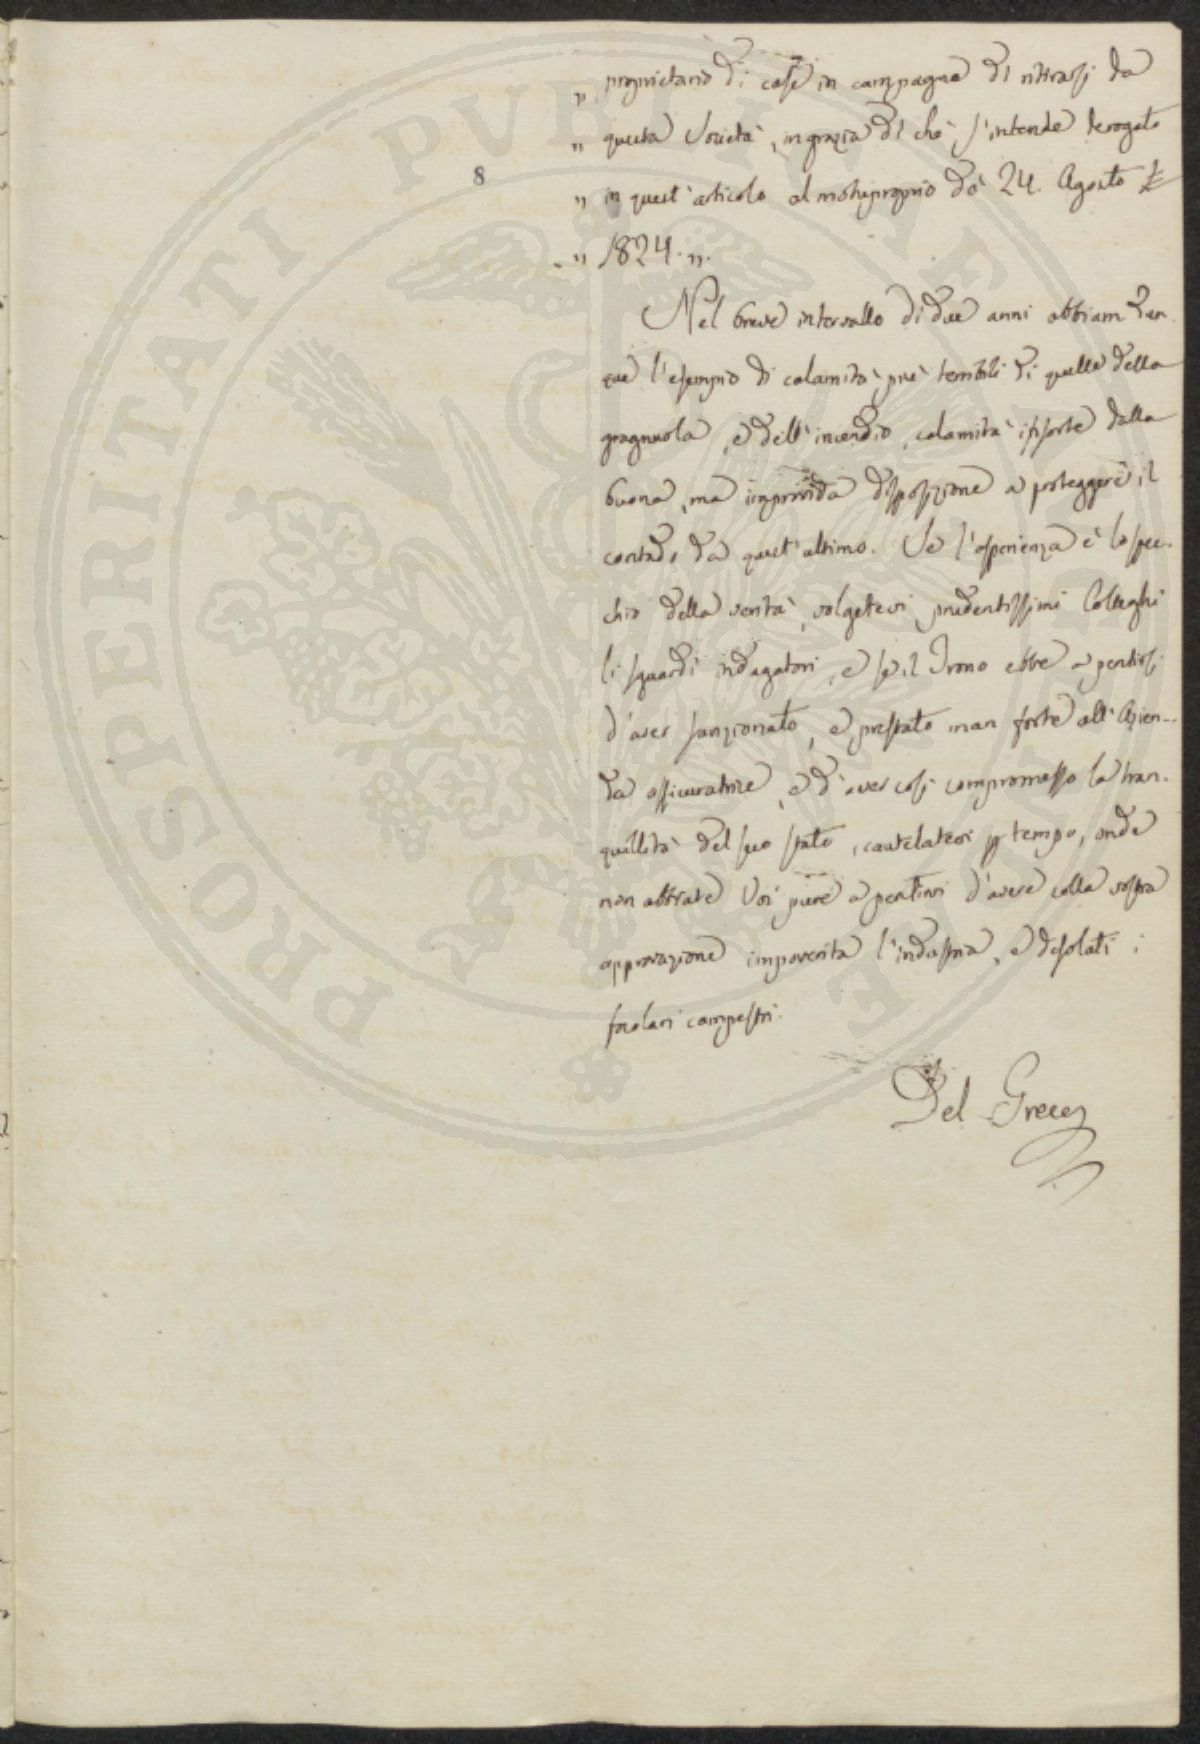 8
„ proprietario di case in campagna di ritirarsi da
„ questa Società, in grazia di chè s'intende derogato
„ in quest'articolo al motuproprio dè 24. Agosto
„ 1824. „.
Nel breve intervallo di due anni abbiam dun
que l'esempio di calamità più terribili di quelle della
gragnuola, e dell'incendio, calamità insorte dalla
buona, ma improvida disposizione a proteggere il
contado da quest'ultimo. Se l'esperienza è lo spec-
chio della verità, volgetevi prudentissimi Colleghi
li sguardi indagatori, e se il Trono ebbe a pentirsi
d'aver sanzionato, e prestato man forte all'Azien-
da assicuratrice, e d'aver così compromesso la tran-
quillità del suo stato, cautelatevi p tempo, onde
non abbiate Voi pure a pentirvi d'avere colla vostra
approvazione impoverita l'industria, e desolati i
focolari campestri.
Del Greco
PROSPERITATI PUBLICAE AUGENDAE